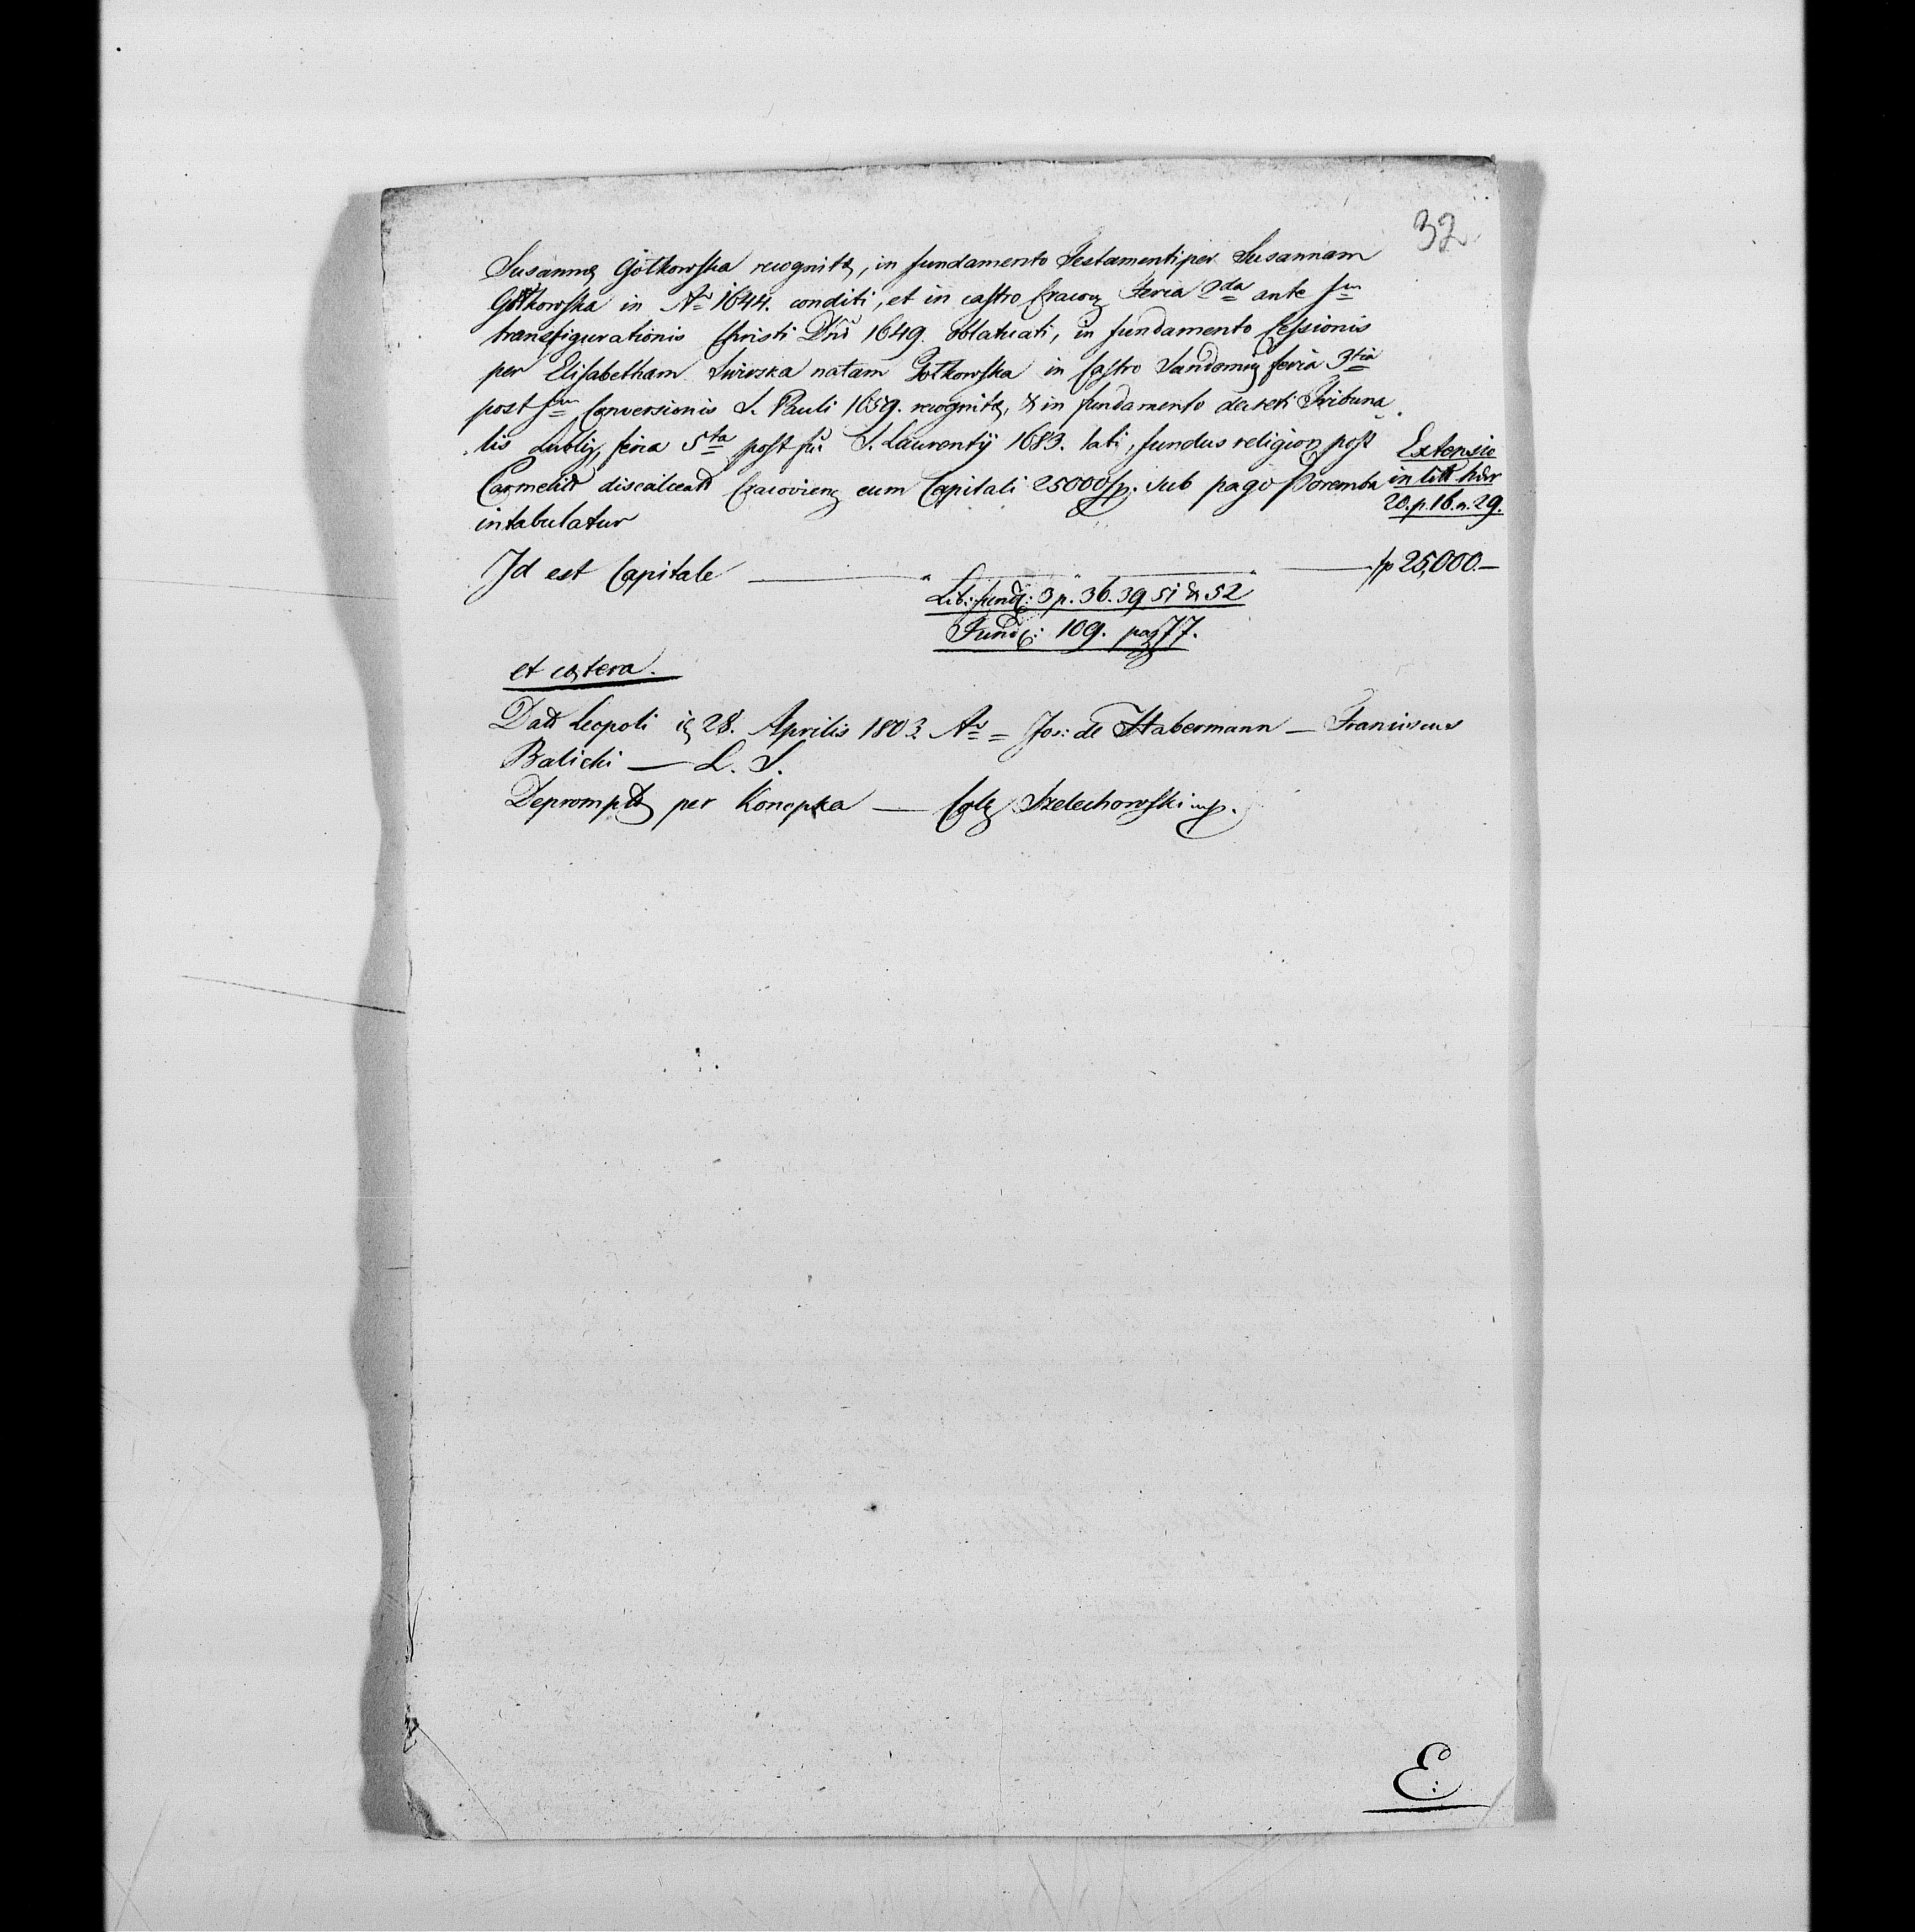 32
Susannę Gotkowska recognitę, in fundamento Testamenti per Susannam
Gotkowska in Aº 1644. conditi, et in castro Cracov Feria 2da ante fm
transfigurationis Christi Dni 1649. oblatuati, in fundamento Cessionis
per Elisabetham natam Gotkowska in Castro Sandomię feria 3tia
post fm Conversionis S. Pauli 1659. recognitę, & in fundamento decreti Tribuna
lis Lubli, feria 5ta post S. Laurentij 1683. lati, fundus religion post
Carmelit discalceat Cracovien cum Capitali 25000 fp. sub pago Poremba
intabulatur
Extensio
in litt
20. p. 16. n. 29.
Id est Capitale — fp 25,000.—
Lib: fund: 3 p. 36. 39 51 & 52
Fund: 109. pag 77.
et cętera.
Dat Leopoli 28. Aprilis 1803 Aº = Jos: de Habermann — Franciscus
Balicki — L. S.
Deprompt per Konopka — Szelechowski mp.
E: